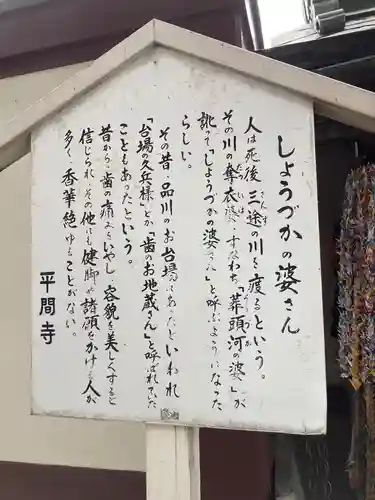 しょうづかの婆さん
人は死後三途の川を渡るという。
さんず
その川の奪衣婆、すなわち「葬頭河の婆」が
だつえば
しょうづか
訛って「しょうづかの婆さん」と呼ぶようになった
らしい。
その昔、品川のお台場にあったといわれ
「台場の久兵様」とか「歯のお地蔵さん」と呼ばれていた
こともあったという。
昔から歯の痛みをいやし、容貌を美しくすると
信じられ、その他にも健脚など諸願をかける人が
多く、香華絶ゆることがない。
平間寺